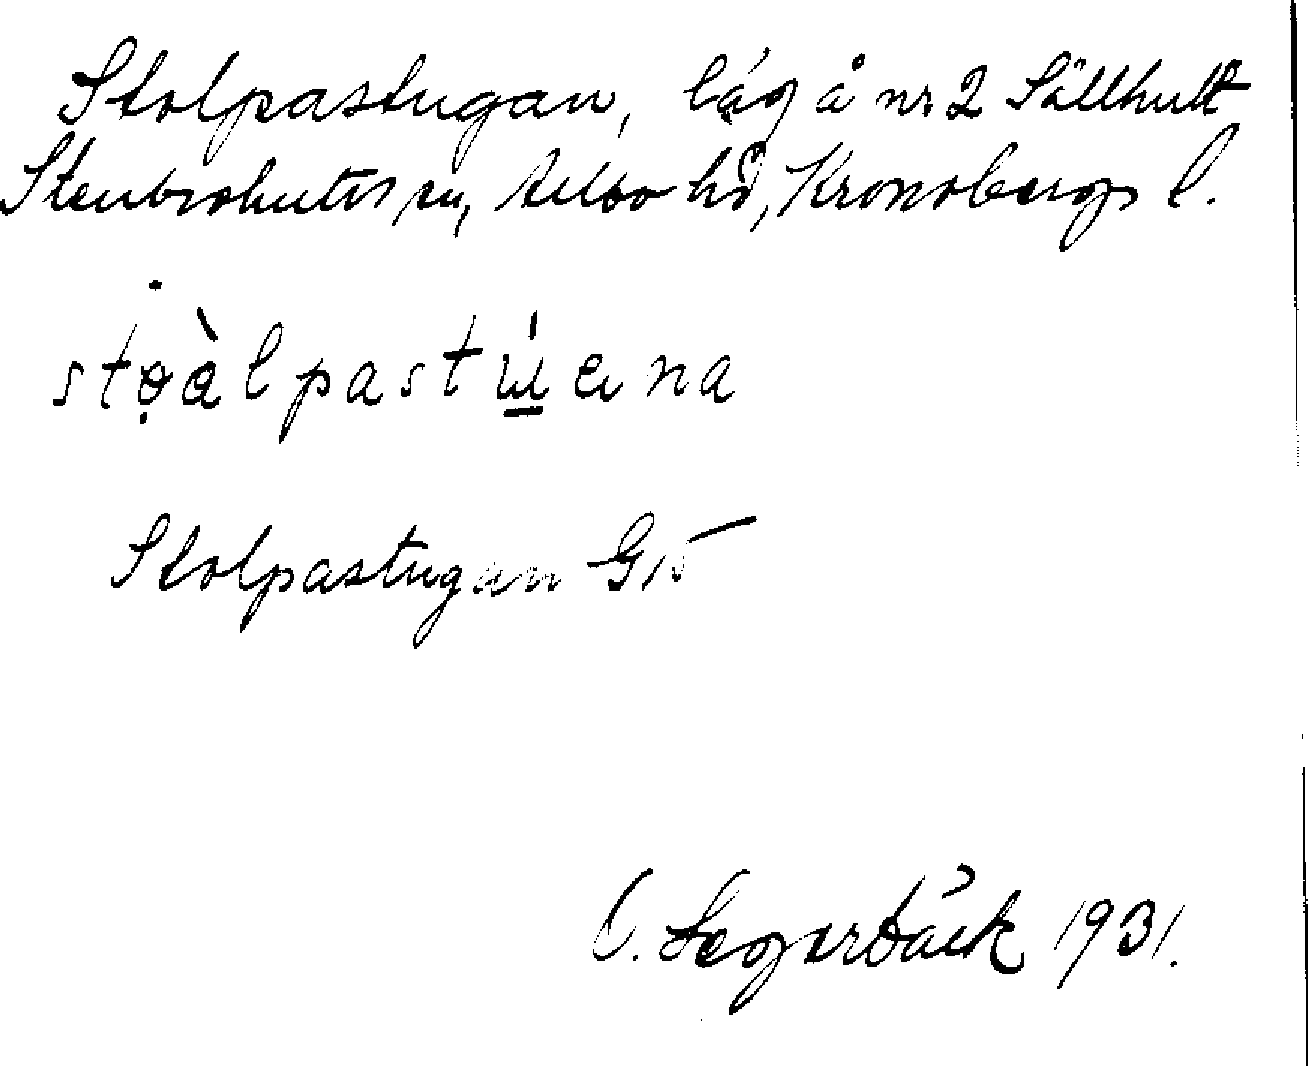 Stolpastugan, låg å nr 2 Sällhult
Stenbrohults sn, Allbo hd, Kronobergs l.
stọàlpastú̲ɐna
Stolpastugan G15
C. Segerbäck 1931.